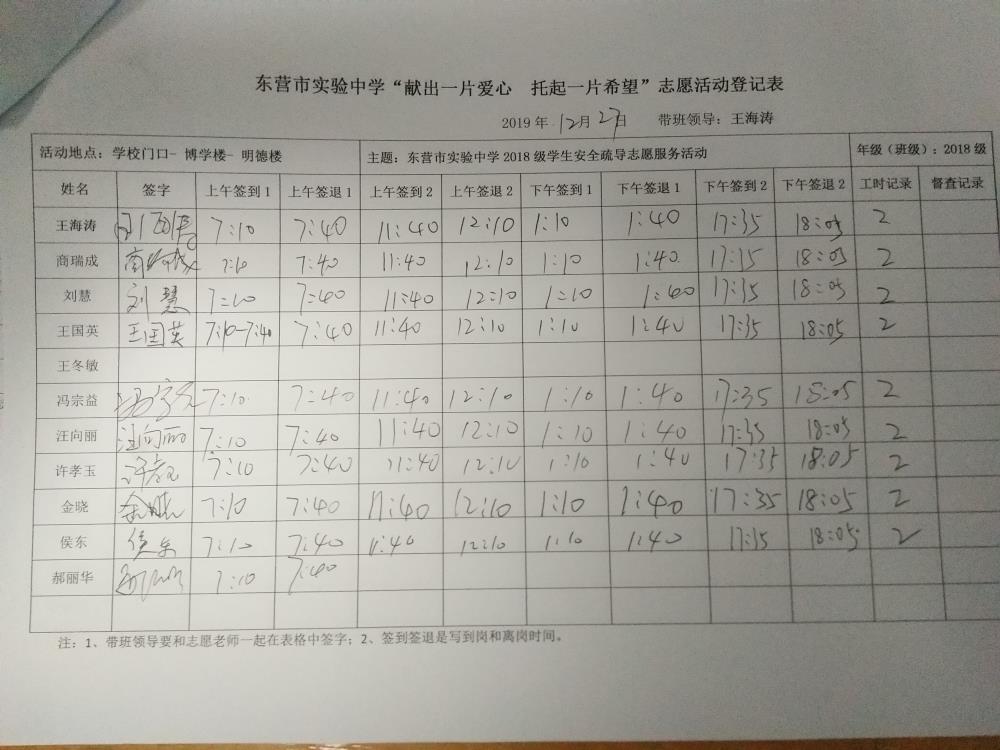 东营市实验中学“献出一片爱心 托起一片希望”志愿活动登记表
2019 年 12月 27日 带班领导：王海涛
活动地点：学校门口- 博学楼- 明德楼 主题：东营市实验中学 2018 级学生安全疏导志愿服务活动 年级（班级）：2018 级
姓名 签字 上午签到 1 上午签退 1 上午签到 2 上午签退 2 下午签到 1 下午签退 1 下午签到 2 下午签退 2 工时记录 督查记录
王海涛 7:10 7:40 11:40 12:10 1:10 1:40 17:35 18:05 2
商瑞成 商瑞成 7:10 7:40 11:40 12:10 1:10 1:40 17:35 18:05 2
刘慧 刘慧 7:10 7:40 11:40 12:10 1:10 1:40 17:35 18:05 2
王国英 王国英 7:10-7:40 7:40 11:40 12:10 1:10 1:40 17:35 18:05 2
王冬敏
冯宗益 7:10 7:40 11:40 12:10 1:10 1:40 17:35 18:05 2
汪向丽 汪向丽 7:10 7:40 11:40 12:10 1:10 1:40 17:35 18:05 2
许孝玉 许孝玉 7:10 7:40 11:40 12:10 1:10 1:40 17:35 18:05 2
金晓 金晓 7:10 7:40 11:40 12:10 1:10 1:40 17:35 18:05 2
侯东 侯东 7:10 7:40 11:40 12:10 1:10 1:40 17:35 18:05 2
郝丽华 7:10 7:40
注：1、带班领导要和志愿老师一起在表格中签字；2、签到签退是写到岗和离岗时间。